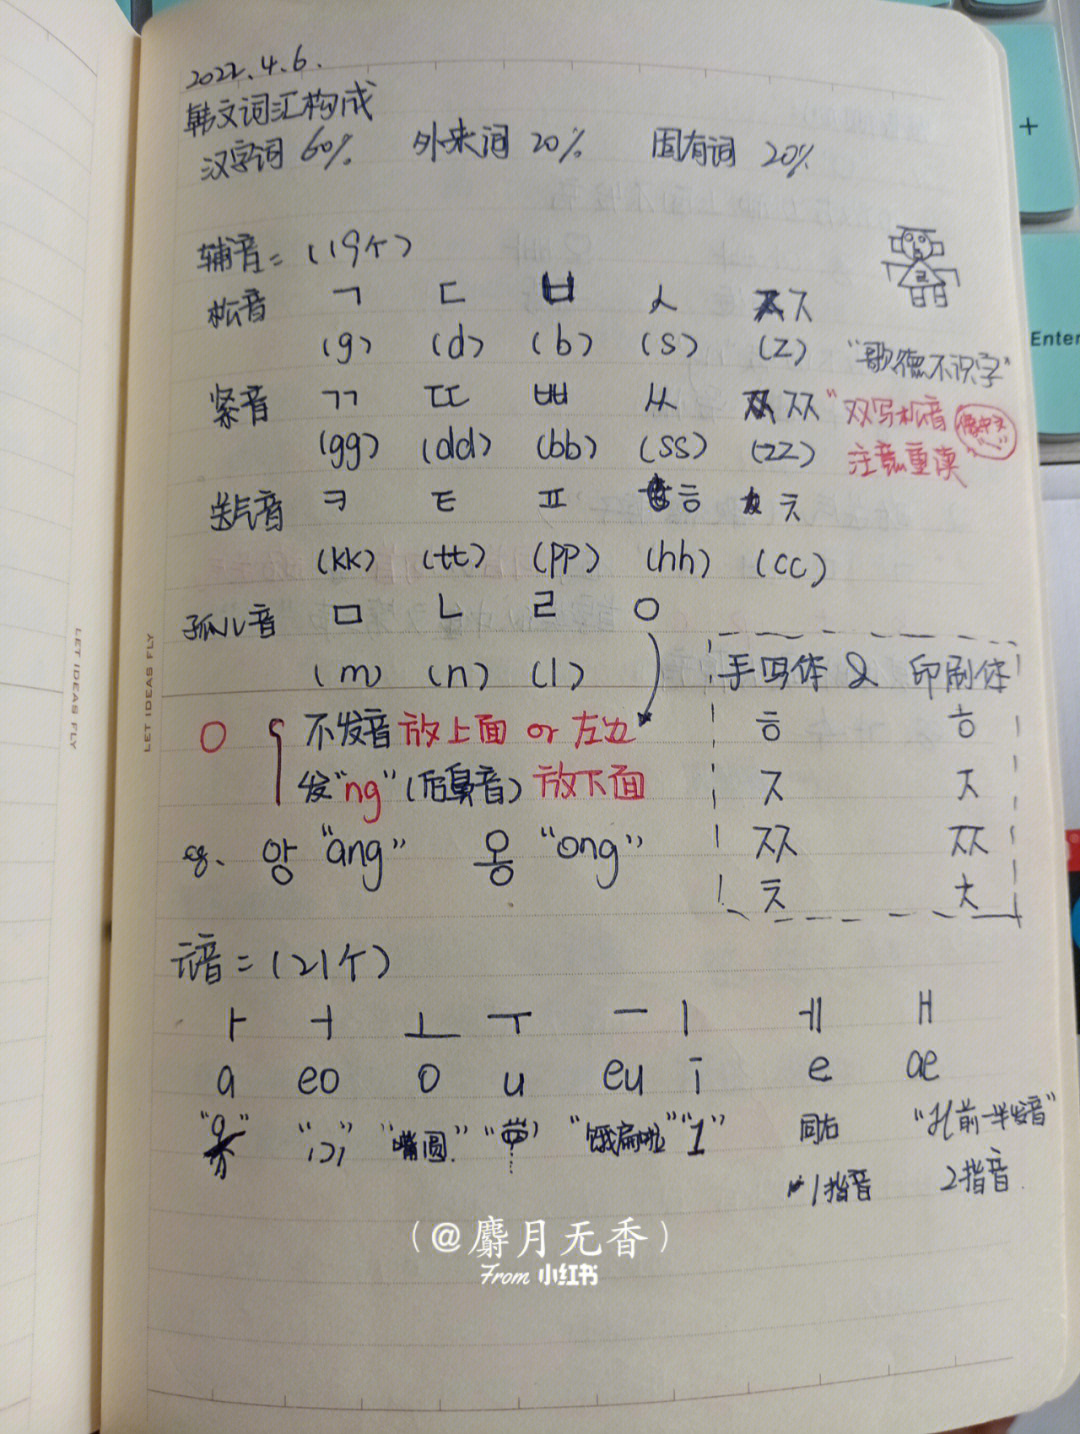 2022.4.6.
韩文词汇构成
汉字词 60% 外来词 20% 固有词 20%
辅音=(19个)
松音 ㄱ ㄷ ㅂ ㅅ ㅈ
(g) (d) (b) (s) (z) "歌德不识字"
紧音 ㄲ ㄸ ㅃ ㅆ ㅉ "双写松音
(gg) (dd) (bb) (ss) (zz) 注意重读"
送气音 ㅋ ㅌ ㅍ ㅎ ㅊ
(kk) (tt) (pp) (hh) (cc)
孤儿音 ㅁ ㄴ ㄹ ㅇ
(m) (n) (l)
手写体 & 印刷体
ㅎ ㅎ
ㅈ ㅈ
ㅉ ㅉ
ㅊ ㅊ
ㅇ 不发音 放上面 or 左边
发"ng"(后鼻音) 放下面
eg. 앙 "ang" 옹 "ong"
元音=(21个)
ㅏ ㅓ ㅗ ㅜ ㅡ ㅣ ㅔ ㅐ
a eo o u eu i e ae
"嘴圆" "饿扁啦" "1" 同右 前一半发音"
1指音 2指音
(@麝月无香)
From 小红书
LET IDEAS FLY
LET IDEAS FLY
+
Enter